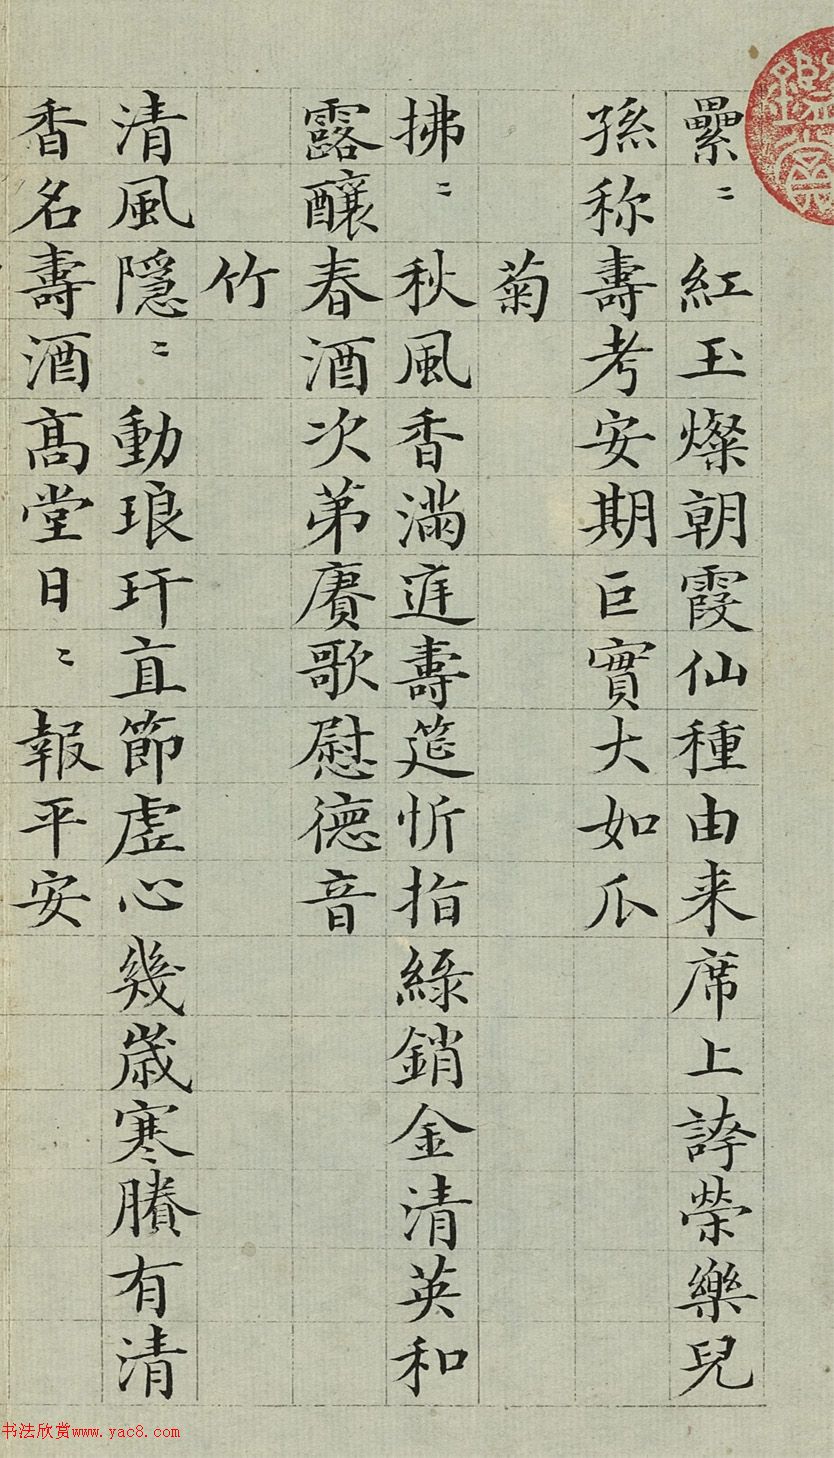 纍〻紅玉燦朝霞仙種由来席上誇榮樂兒
孫称壽考安期巨實大如瓜
菊
拂〻秋風香滿庭壽筵忻指綠銷金清英和
露釀春酒次第賡歌慰德音
竹
清風隱〻動琅玕直節虛心幾歲寒賸有清
香名壽酒高堂日〻報平安
书法欣赏www.yac8.com